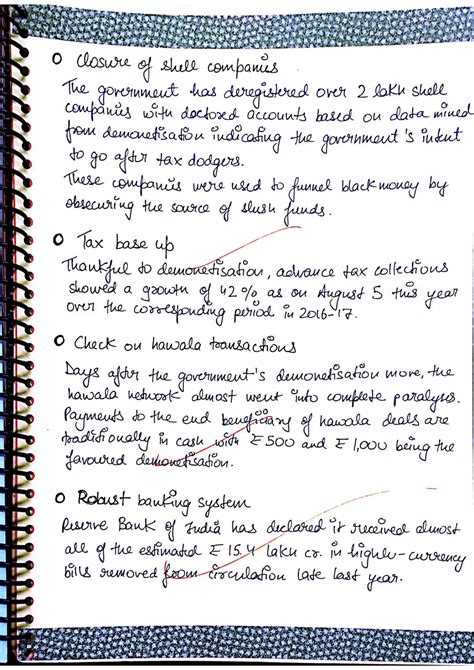 Closure of shell companies
The government has deregistered over 2 lakh shell
companies with doctored accounts based on data mined
from demonetisation indicating the government's intent
to go after tax dodgers.
These companies were used to funnel black money by
obsecuring the source of slush funds.
Tax base up
Thankful to demonetisation, advance tax collections
showed a growth of 42% as on August 5 this year
over the corresponding period in 2016-17.
Check on hawala transactions
Days after the government's demonetisation move, the
hawala network almost went into complete paralyses.
Payments to the end beneficiary of hawala deals are
traditionally in cash with ₹500 and ₹1,000 being the
favoured demonetisation.
Robust banking system
Reserve Bank of India has declared it received almost
all of the estimated ₹15.4 lakh cr. in highly-currency
bills removed from circulation late last year.